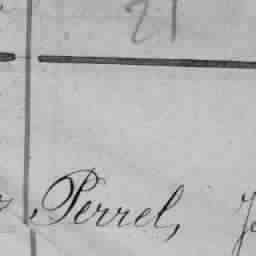 21
Perrel,